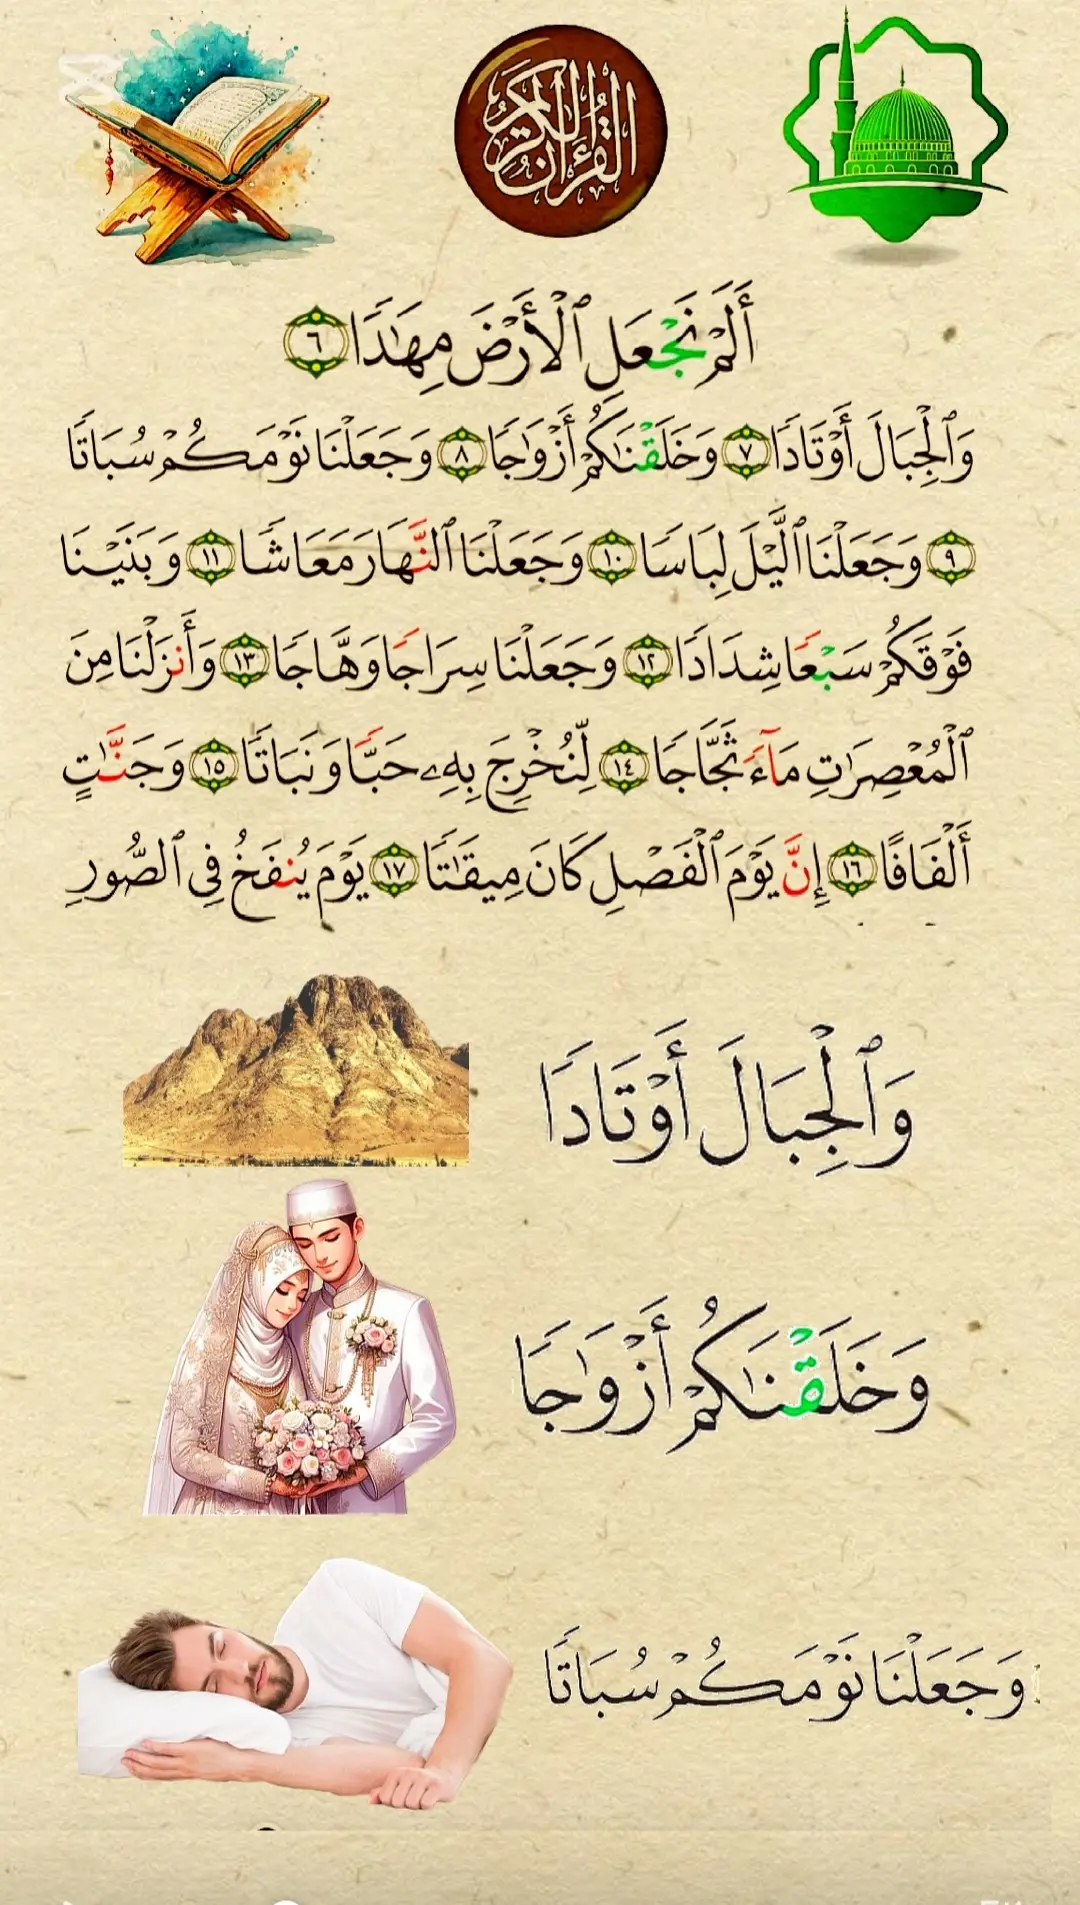 القرآن الكريم
أَلَمْ نَجْعَلِ ٱلْأَرْضَ مِهَٰدًا ٦
وَٱلْجِبَالَ أَوْتَادًا ٧ وَخَلَقْنَٰكُمْ أَزْوَٰجًا ٨ وَجَعَلْنَا نَوْمَكُمْ سُبَاتًا
٩ وَجَعَلْنَا ٱلَّيْلَ لِبَاسًا ١٠ وَجَعَلْنَا ٱلنَّهَارَ مَعَاشًا ١١ وَبَنَيْنَا
فَوْقَكُمْ سَبْعًا شِدَادًا ١٢ وَجَعَلْنَا سِرَاجًا وَهَّاجًا ١٣ وَأَنزَلْنَا مِنَ
ٱلْمُعْصِرَٰتِ مَآءً ثَجَّاجًا ١٤ لِّنُخْرِجَ بِهِۦ حَبًّا وَنَبَاتًا ١٥ وَجَنَّٰتٍ
أَلْفَافًا ١٦ إِنَّ يَوْمَ ٱلْفَصْلِ كَانَ مِيقَٰتًا ١٧ يَوْمَ يُنفَخُ فِى ٱلصُّورِ
وَٱلْجِبَالَ أَوْتَادًا
وَخَلَقْنَٰكُمْ أَزْوَٰجًا
وَجَعَلْنَا نَوْمَكُمْ سُبَاتًا